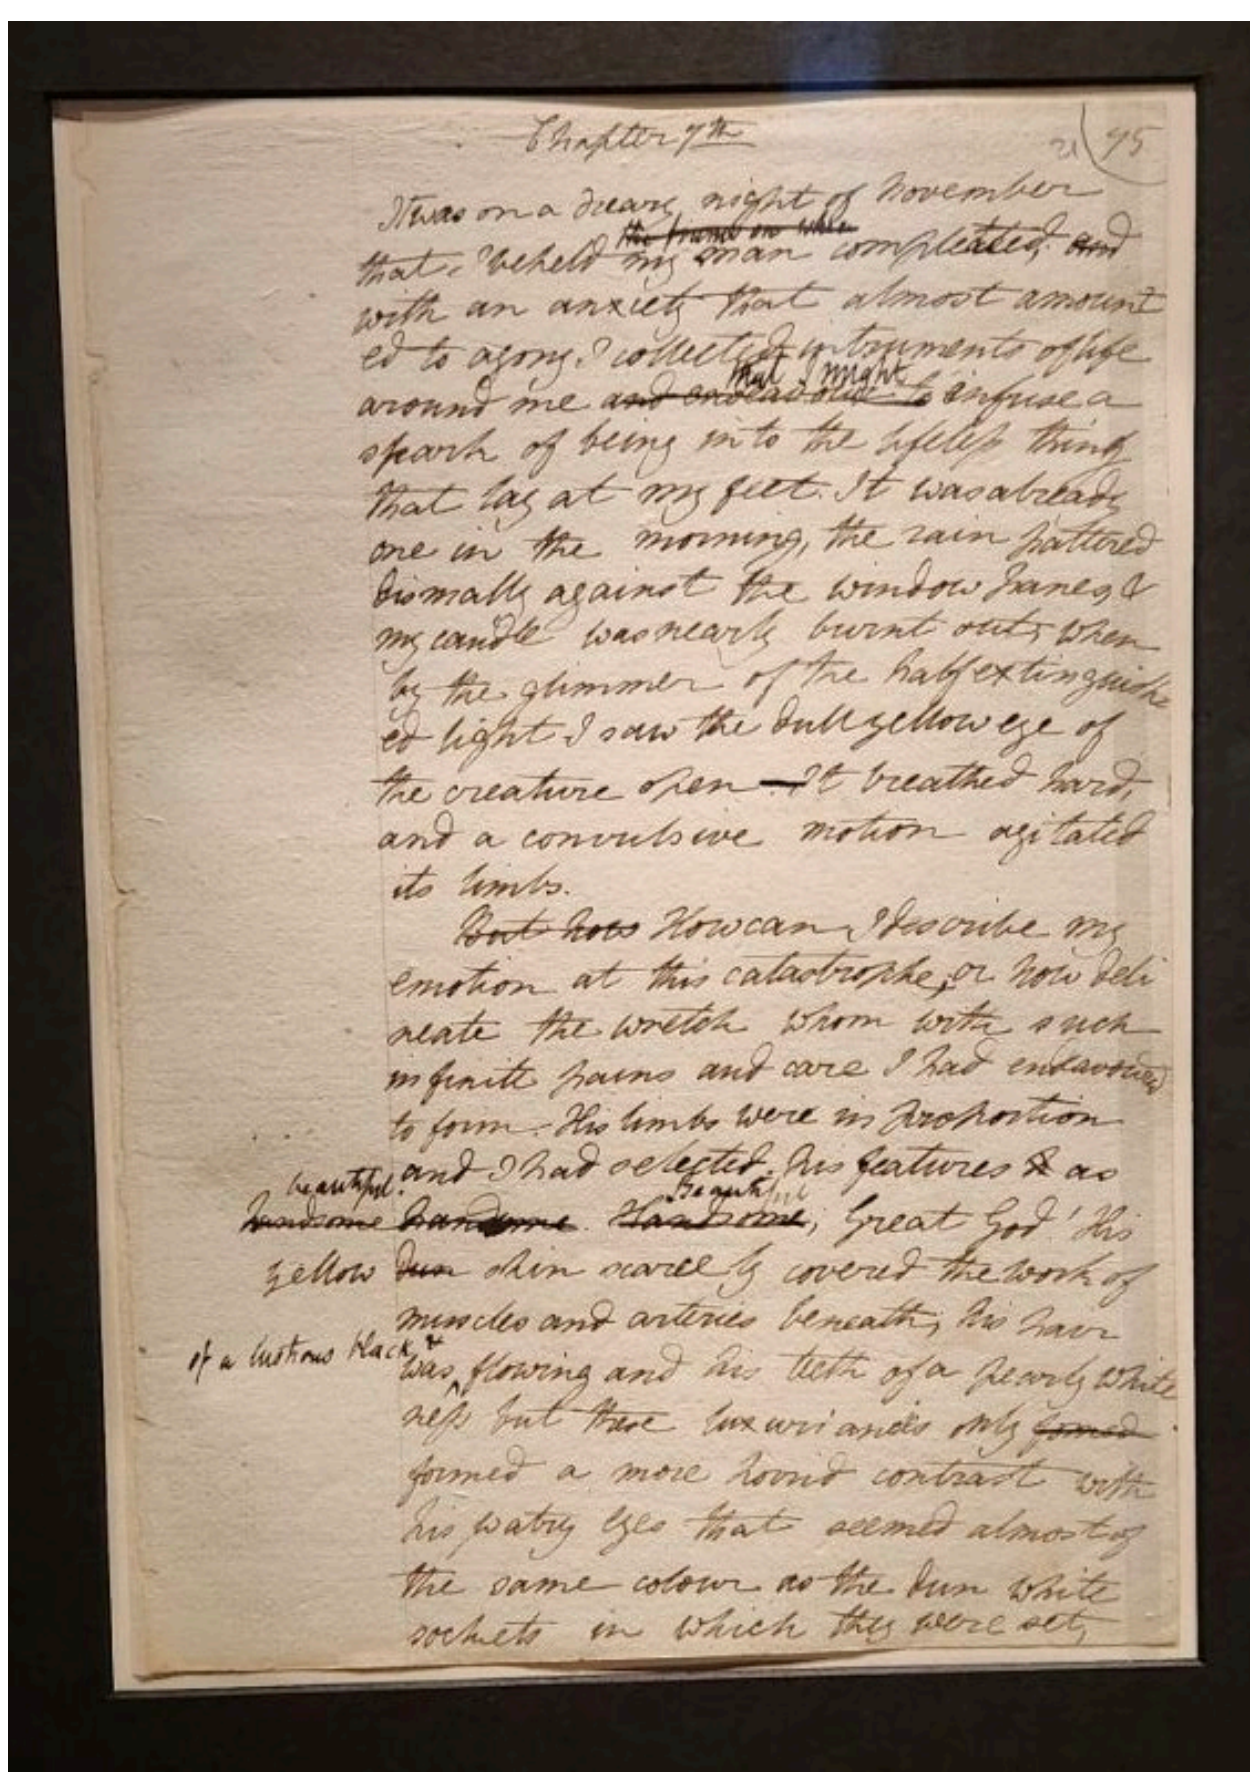 Chapter 7th
21
95
It was on a dreary night of November
the frame on when
that I beheld my man compleated, and
with an anxiety that almost amount
ed to agony I collected instruments of life
that I might
around me and endeavour to infuse a
spark of being into the lifeless thing
that lay at my feet. It was already
one in the morning, the rain pattered
dismally against the window panes, &
my candle was nearly burnt out, when
by the glimmer of the half extinguish
ed light I saw the dull yellow eye of
the creature open — It breathed hard,
and a convulsive motion agitated
its limbs.
But how How can I describe my
emotion at this catastrophe, or how deli
neate the wretch whom with such
infinite pains and care I had endeavoured
to form. His limbs were in proportion
and I had selected his features as
beautiful.
Beautiful
handsome handsome. Handsome, Great God! His
yellow dun skin scarcely covered the work of
muscles and arteries beneath; his hair
of a lustrous black &
was flowing and his teeth of a pearly white
ness but these luxuriances only formed
formed a more horrid contrast with
his watry eyes that seemed almost of
the same colour as the dun white
sockets in which they were set,